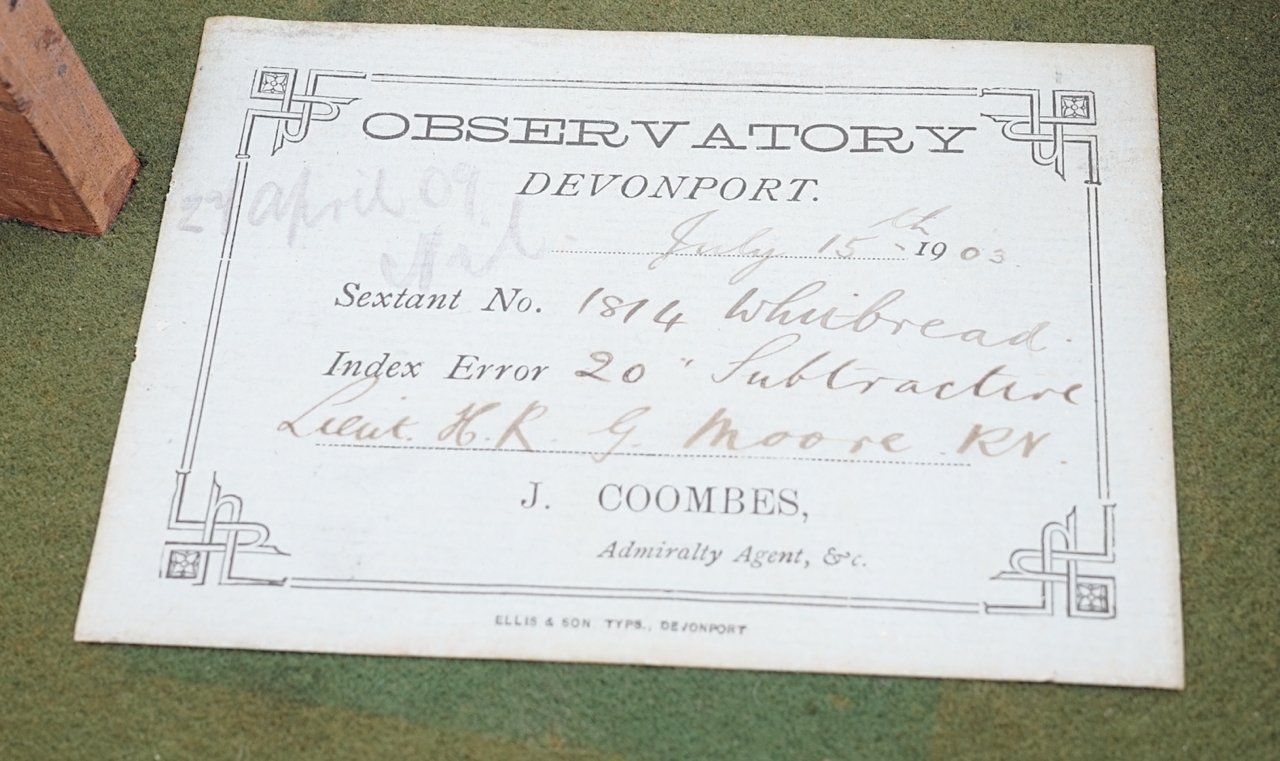 OBSERVATORY
DEVONPORT.
27 April 09
Nil
July 15th 1903
Sextant No. 1814 Whitbread.
Index Error 20" Subtractive
Lieut. H. R. G. Moore. RN.
J. COOMBES,
Admiralty Agent, &c.
ELLIS & SON TYPS., DEVONPORT